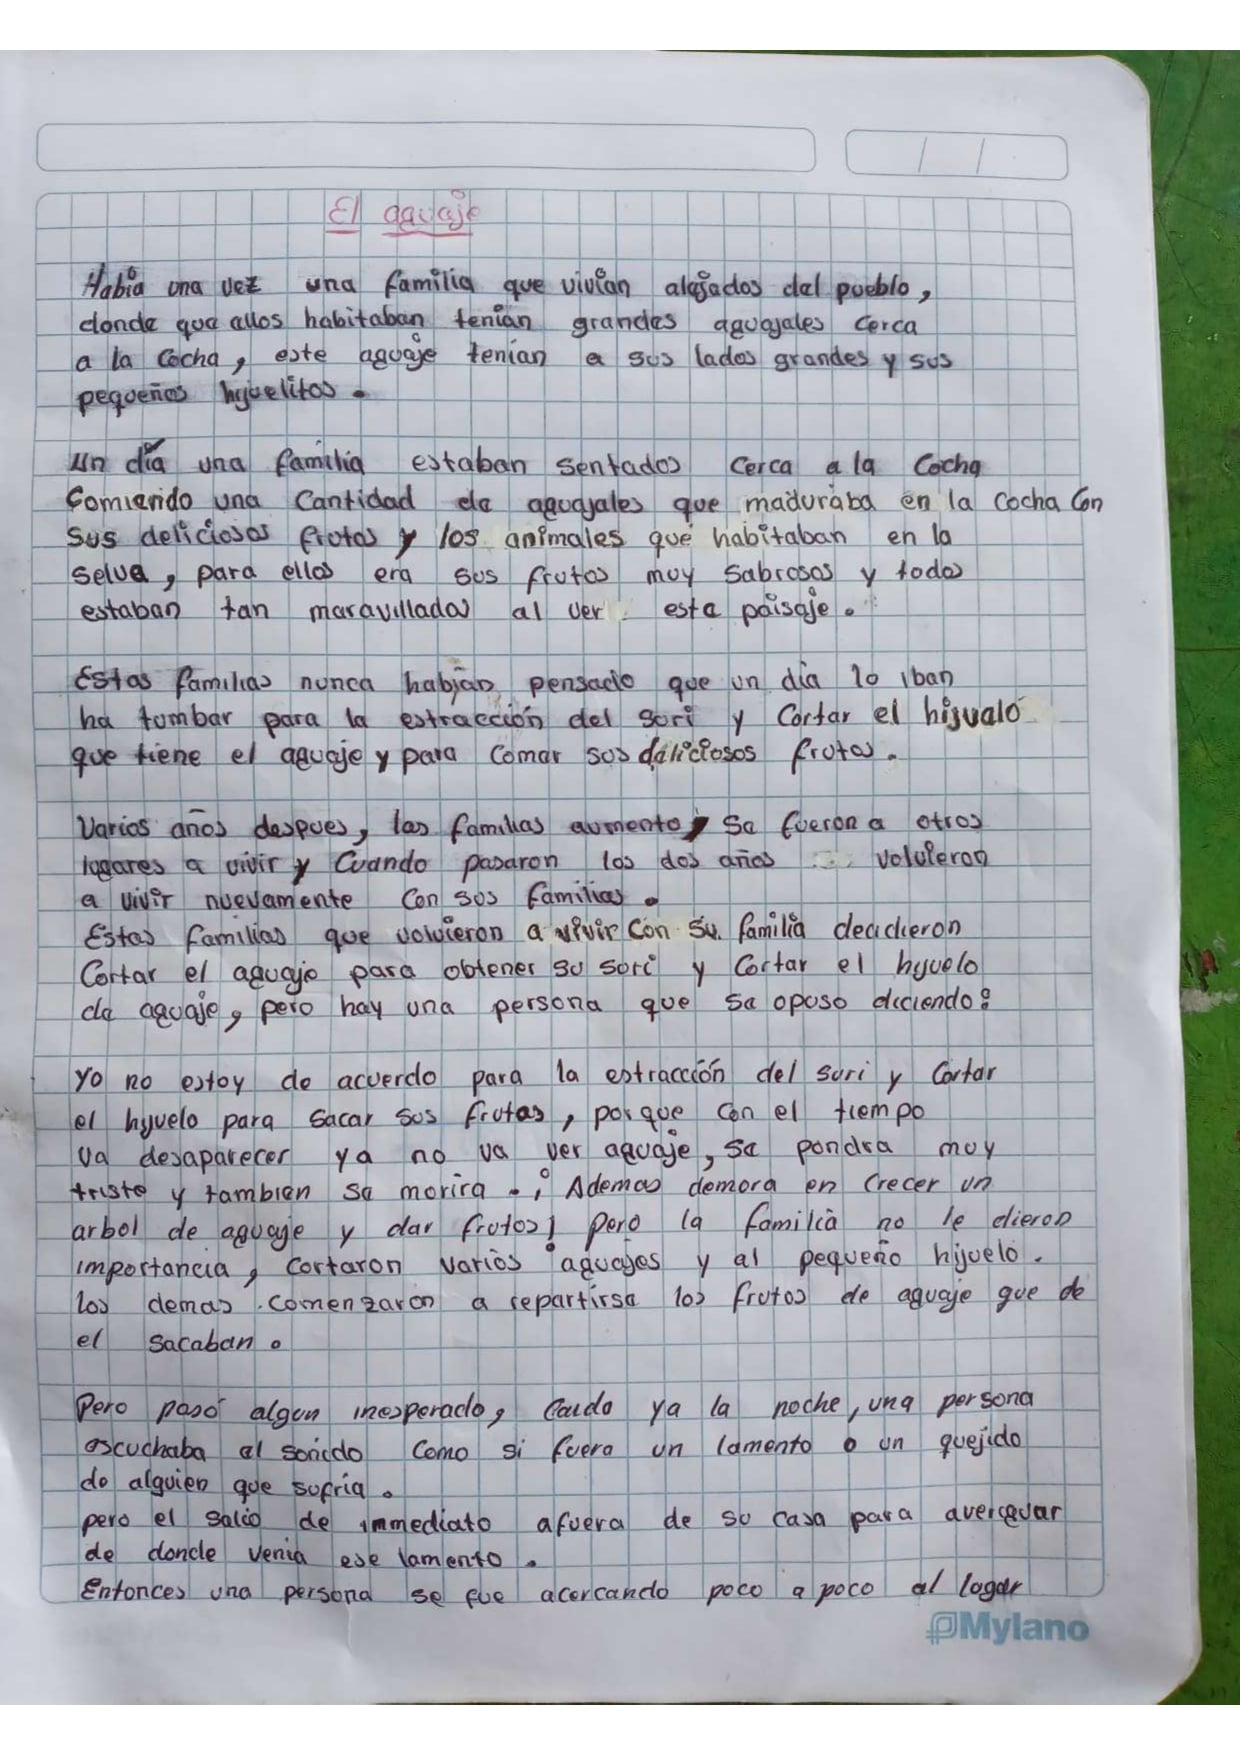 El aguaje
Había una vez una familia que vivían alejados del pueblo,
donde que ellos habitaban tenían grandes aguajales cerca
a la cocha, este aguaje tenían a sus lados grandes y sus
pequeños hijuelitos.
Un día una familia estaban sentados cerca a la cocha
Comiendo una cantidad de aguajales que maduraba en la cocha con
sus deliciosos frutos y los animales que habitaban en la
selva, para ellos era sus frutos muy sabrosos y todos
estaban tan maravillados al ver este paisaje.
Estas familias nunca habían pensado que un día lo iban
ha tumbar para la estracción del suri y cortar el hijualo
que tiene el aguaje y para comer sus deliciosos frutos.
Varios años despues, las familias aumento, se fueron a otros
lugares a vivir y cuando pasaron los dos años volvieron
a vivir nuevamente con sus familias.
Estas familias que volvieron a vivir con su familia decidieron
Cortar el aguaje para obtener su suri y cortar el hijuelo
de aguaje, pero hay una persona que se opuso diciendo:
Yo no estoy de acuerdo para la estracción del suri y cortar
el hijuelo para sacar sus frutas, porque con el tiempo
va desaparecer ya no va ver aguaje, se pondra muy
triste y tambien se morira. ¡Ademas demora en crecer un
arbol de aguaje y dar frutos! pero la familia no le dieron
importancia, cortaron varios aguajes y al pequeño hijuelo.
los demas comenzaron a repartirse los frutos de aguaje que de
el sacaban.
Pero pasó algon inesperado, caido ya la noche, una persona
escuchaba el sonido como si fuera un lamento o un quejido
de alguien que sufría.
pero el salio de immediato afuera de su casa para averguar
de donde venia ese lamento.
Entonces una persona se fue acercando poco a poco al lugar
Mylano